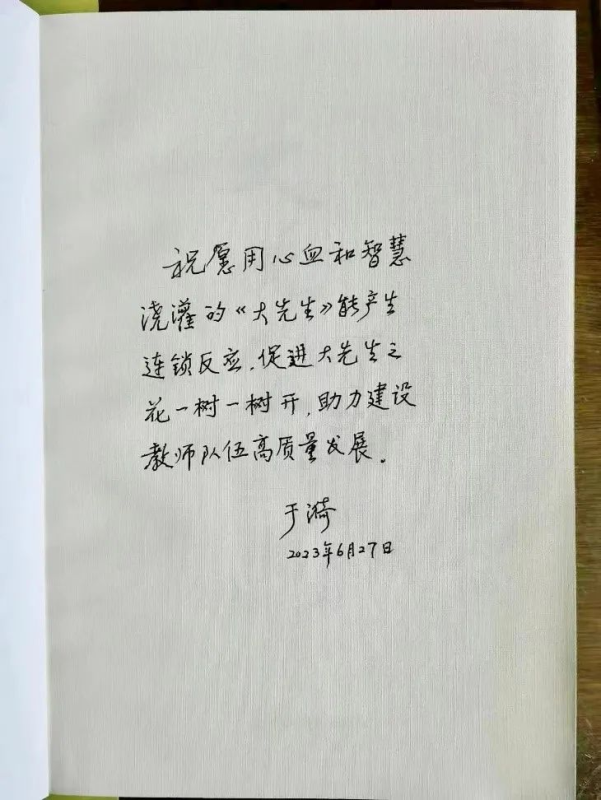 祝愿用心血和智慧
浇灌的《大先生》能产生
连锁反应，促进大先生之
花一树一树开，助力建设
教师队伍高质量发展。
于漪
2023年6月27日